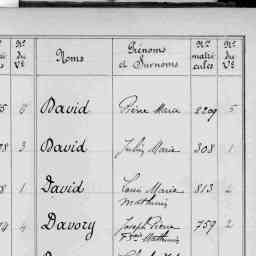 Nº du Vº Noms Prénoms et Surnoms Nos matri cules Nº du Vº
5 6 David Pierre Marie 2209 5
8 3 David Julien Marie 308 1
8 1 David Louis Marie 813 2
Mathurin
4 4 Davory Joseph Pierre 759 2
Fois Mathurin